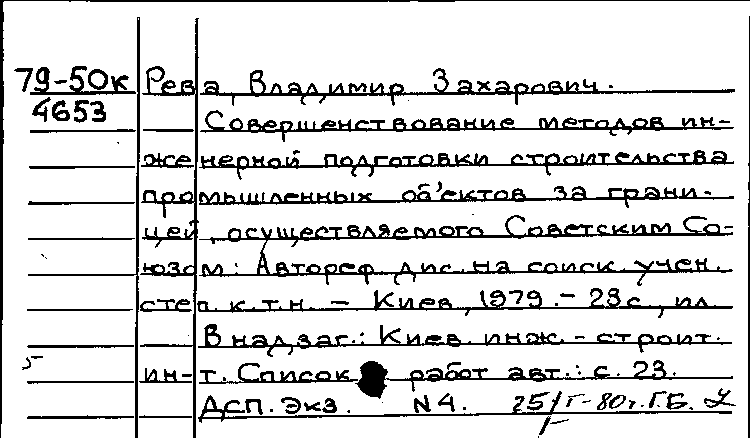 79-50к Рева, Владимир Захарович.
4653
Совершенствование методов ин-
женерной подготовки строительства
промышленных об'ектов за грани-
цей, осуществляемого Советским Со-
юзом: Автореф. дис. на соиск. учен.
степ. к.т.н. – Киев, 1979. – 23 с., ил.
В надзаг.: Киев. инж.-строит.
ин-т. Список работ авт.: с. 23.
ДСП. Экз. N 4.